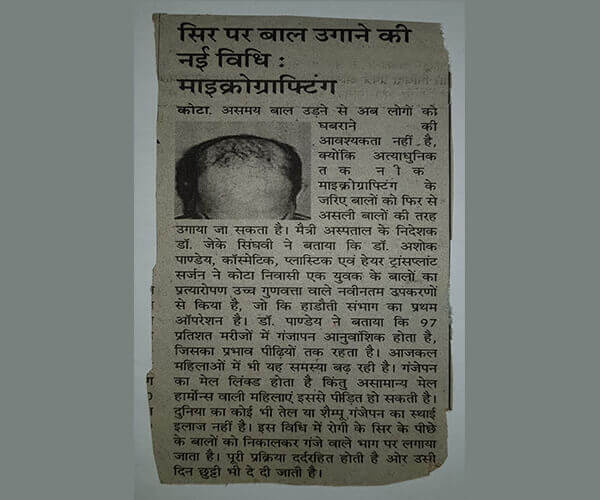 सिर पर बाल उगाने की
नई विधि :
माइक्रोग्राफ्टिंग
कोटा. असमय बाल उड़ने से अब लोगों को
घबराने की
आवश्यकता नहीं है,
क्योंकि अत्याधुनिक
त क नी क
माइक्रोग्राफ्टिंग के
जरिए बालों को फिर से
असली बालों की तरह
उगाया जा सकता है। मैत्री अस्पताल के निदेशक
डॉ. जेके सिंघवी ने बताया कि डॉ. अशोक
पाण्डेय, कॉस्मेटिक, प्लास्टिक एवं हेयर ट्रांसप्लांट
सर्जन ने कोटा निवासी एक युवक के बालों का
प्रत्यारोपण उच्च गुणवत्ता वाले नवीनतम उपकरणों
से किया है, जो कि हाडौती संभाग का प्रथम
ऑपरेशन है। डॉ. पाण्डेय ने बताया कि 97
प्रतिशत मरीजों में गंजापन आनुवांशिक होता है,
जिसका प्रभाव पीढ़ियों तक रहता है। आजकल
महिलाओं में भी यह समस्या बढ़ रही है। गंजेपन
का मेल लिंक्ड होता है किंतु असामान्य मेल
हार्मोन्स वाली महिलाएं इससे पीड़ित हो सकती है।
दुनिया का कोई भी तेल या शैम्पू गंजेपन का स्थाई
इलाज नहीं है। इस विधि में रोगी के सिर के पीछे
के बालों को निकालकर गंजे वाले भाग पर लगाया
जाता है। पूरी प्रक्रिया दर्दरहित होती है ओर उसी
दिन छुट्टी भी दे दी जाती है।